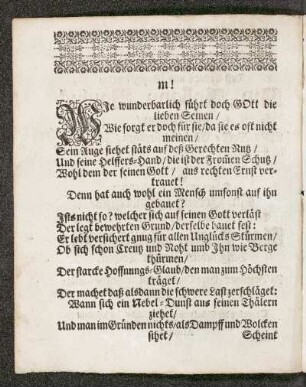 m!
Wie wunderbarlich führt doch GOtt die
lieben Seinen /
Wie sorgt er doch für sie / da sie es oft nicht
meinen /
Sein Auge siehet stäts auf deß Gerechten Nutz /
Und seine Helffers-Hand / die ist der Frommen Schutz /
Wohl dem der seinen Gott / aus rechten Ernst ver-
trauet!
Denn hat auch wohl ein Mensch umsonst auf ihn
gebauet?
Ists nicht so? welcher sich auf seinen Gott verläst
Der legt bewehrten Grund / derselbe bauet fest:
Er lebt versichert gnug für allen Unglücks Stürmen /
Ob sich schon Creutz und Noht umb Ihn wie Berge
thürmen /
Der starcke Hoffnungs-Glaub / den man zum Höchsten
träget /
Der machet daß alsdann die schwere Last zerschläget:
Wann sich ein Nebel-Dunst aus seinen Thälern
ziehet /
Und man im Gründen nichts / als Dampff und Wolcken
sihet /
Scheint